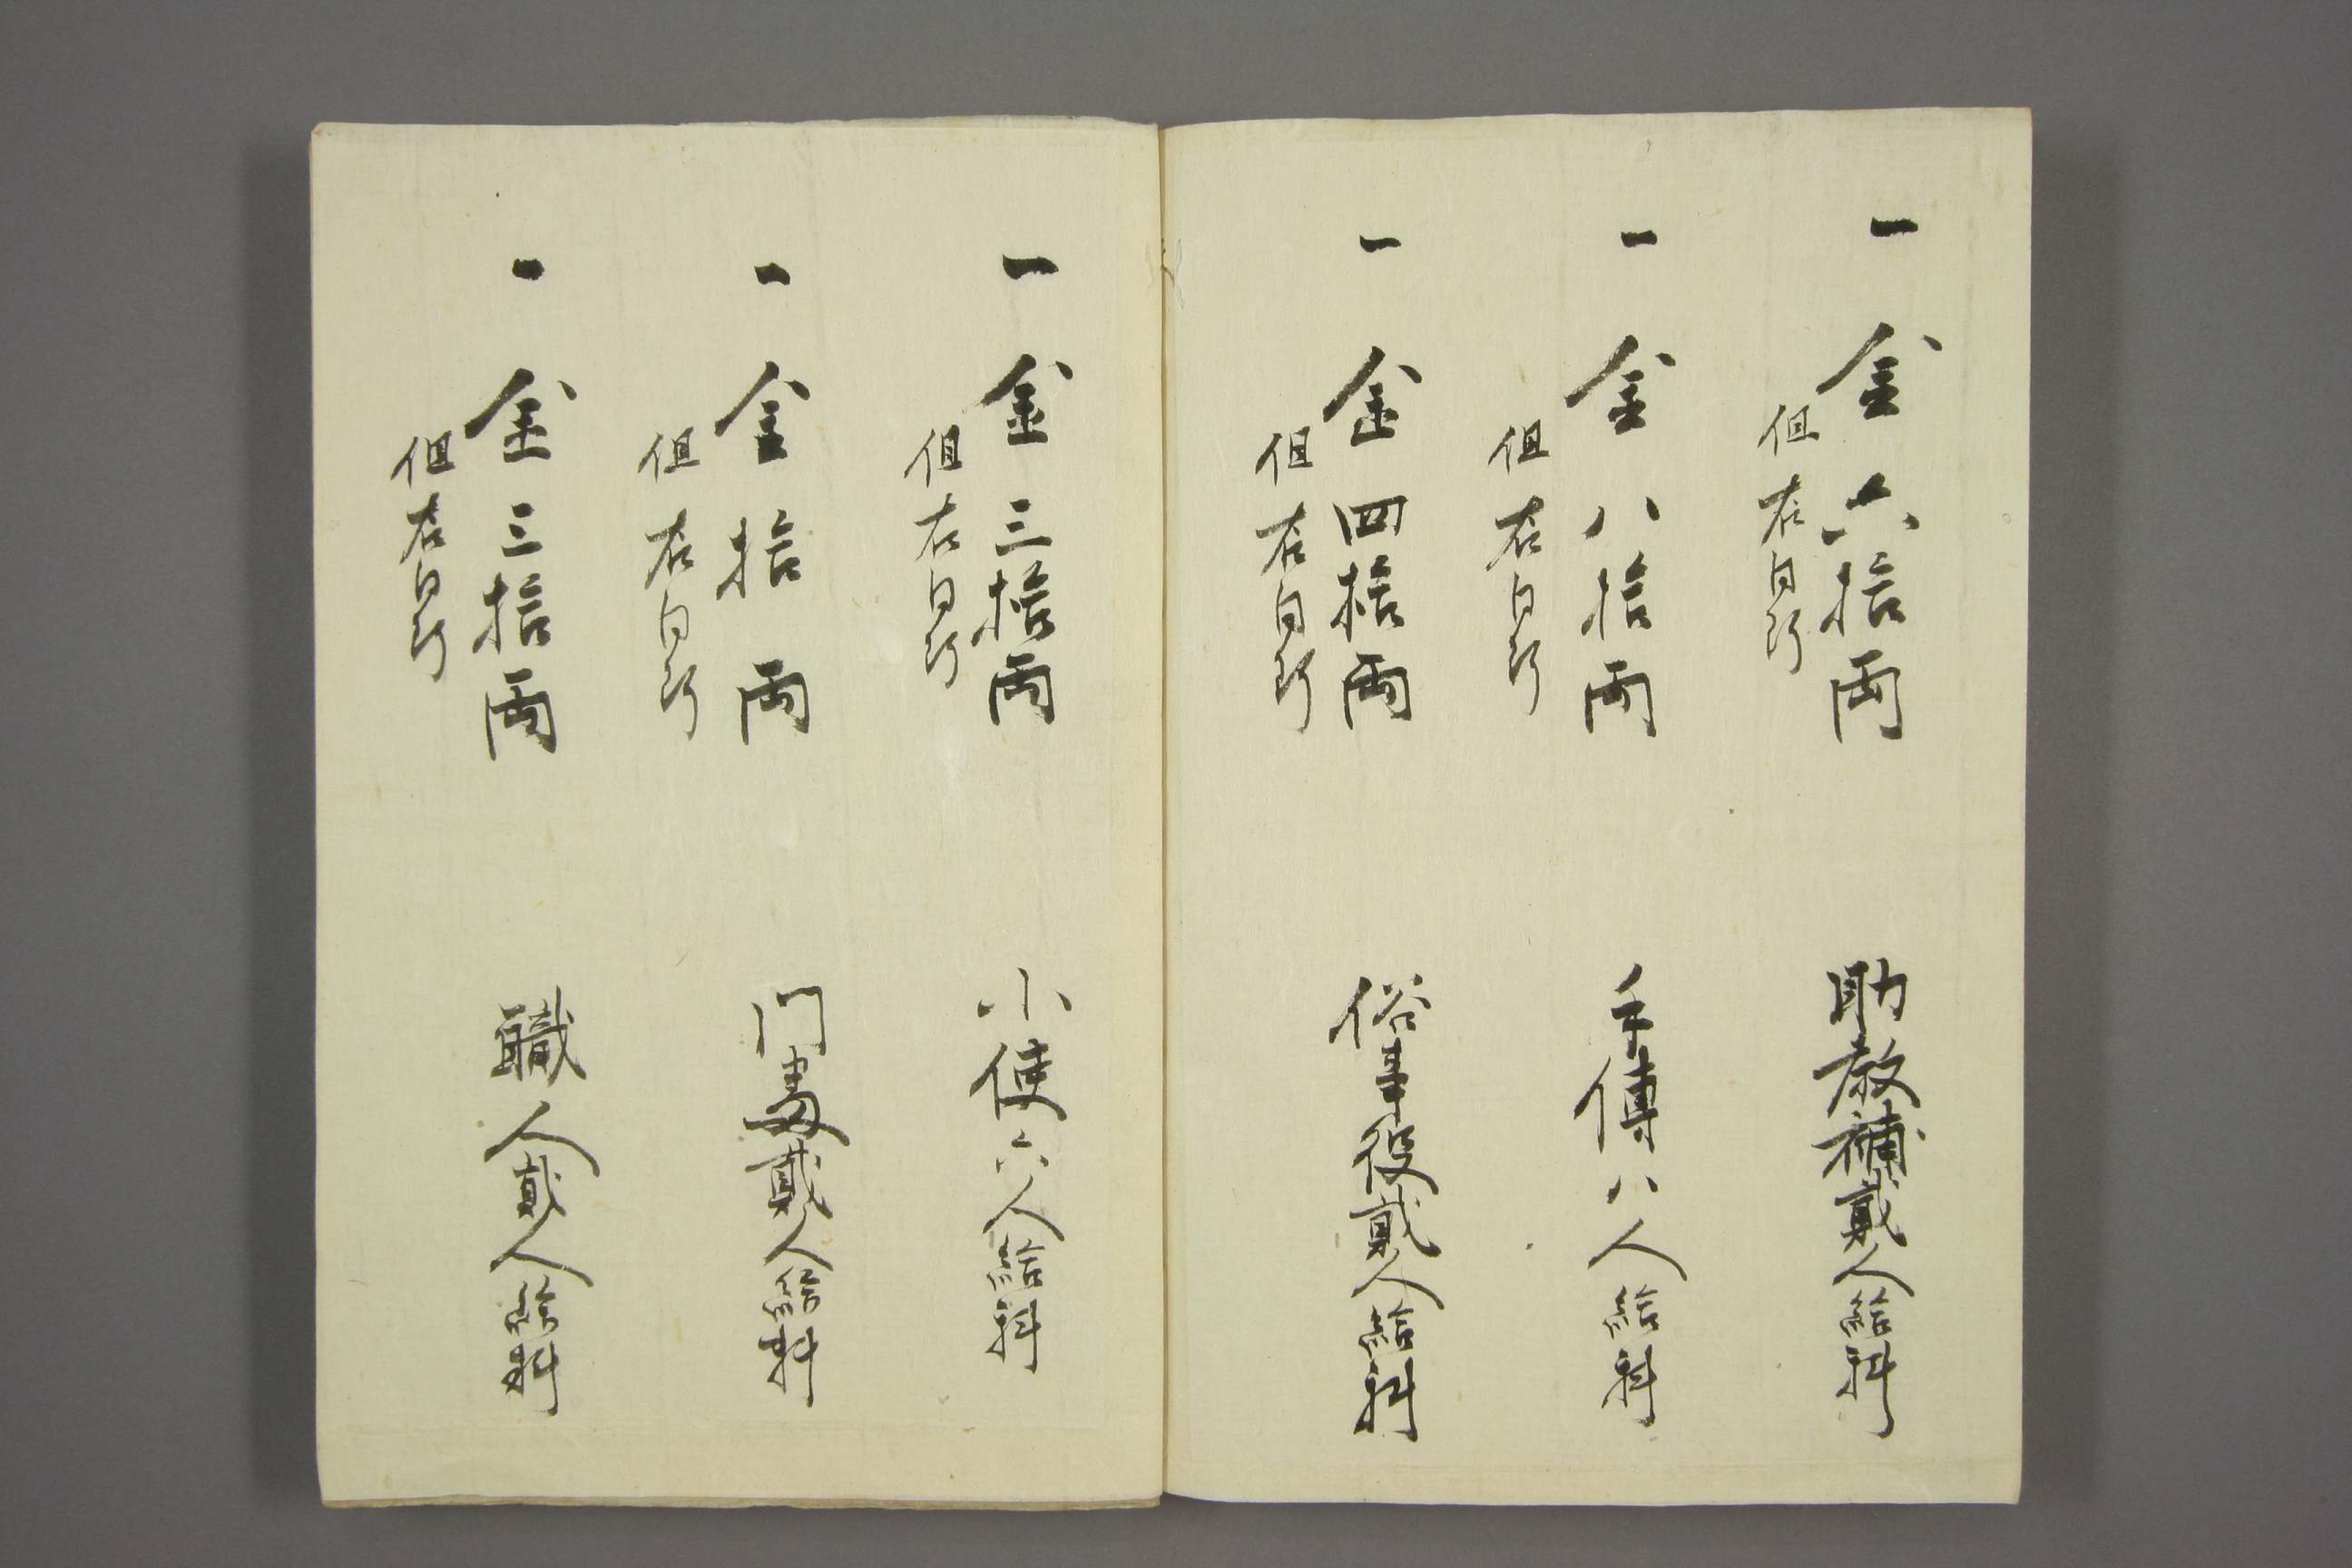 一金六拾両 助教補貳人給料
但右同断
一金八拾両 手傳八人給料
但右同断
一金四拾両 俗事役貳人給料
但右同断
一金三拾両 小使六人給料
但右同断
一金拾両 門番貳人給料
但右同断
一金三拾両 職人貳人給料
但右同断